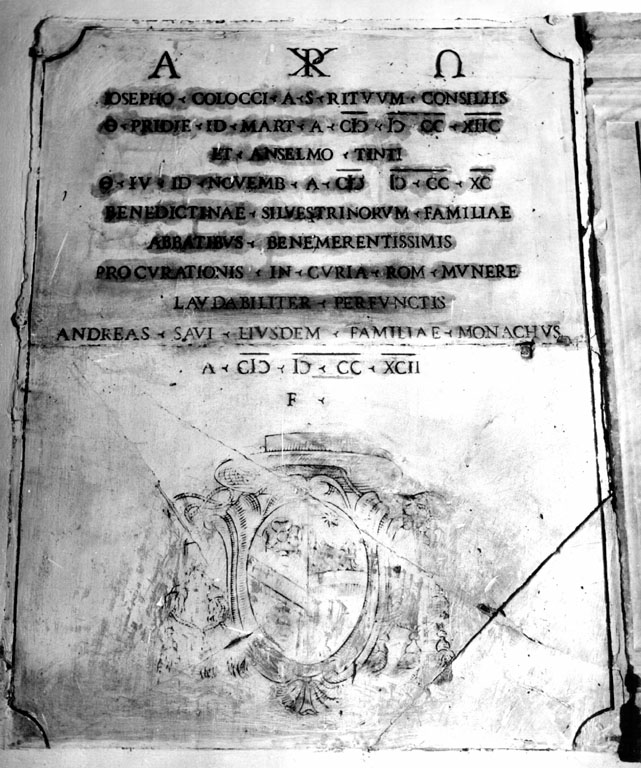 A ☧ Ω
IOSEPHO ‹ COLOCCI ‹ A ‹ S ‹ RITVVM ‹ CONSILIIS
Θ ‹ PRIDIE ‹ ID ‹ MART ‹ A ‹ CIƆ ‹ IƆ CC ‹ XIIC
ET ‹ ANSELMO ‹ TINTI
Θ ‹ IV ‹ ID ‹ NOVEMB ‹ A ‹ CIƆ IƆ ‹ CC ‹ XC
BENEDICTINAE ‹ SILVESTRINORVM ‹ FAMILIAE
ABBATIBVS ‹ BENEMERENTISSIMIS
PROCVRATIONIS ‹ IN ‹ CVRIA ‹ ROM ‹ MVNERE
LAVDABILITER ‹ PERFVNCTIS
ANDREAS ‹ SAVI ‹ EIVSDEM ‹ FAMILIAE ‹ MONACHVS
A ‹ CIƆ ‹ IƆ ‹ CC ‹ XCII
F ‹